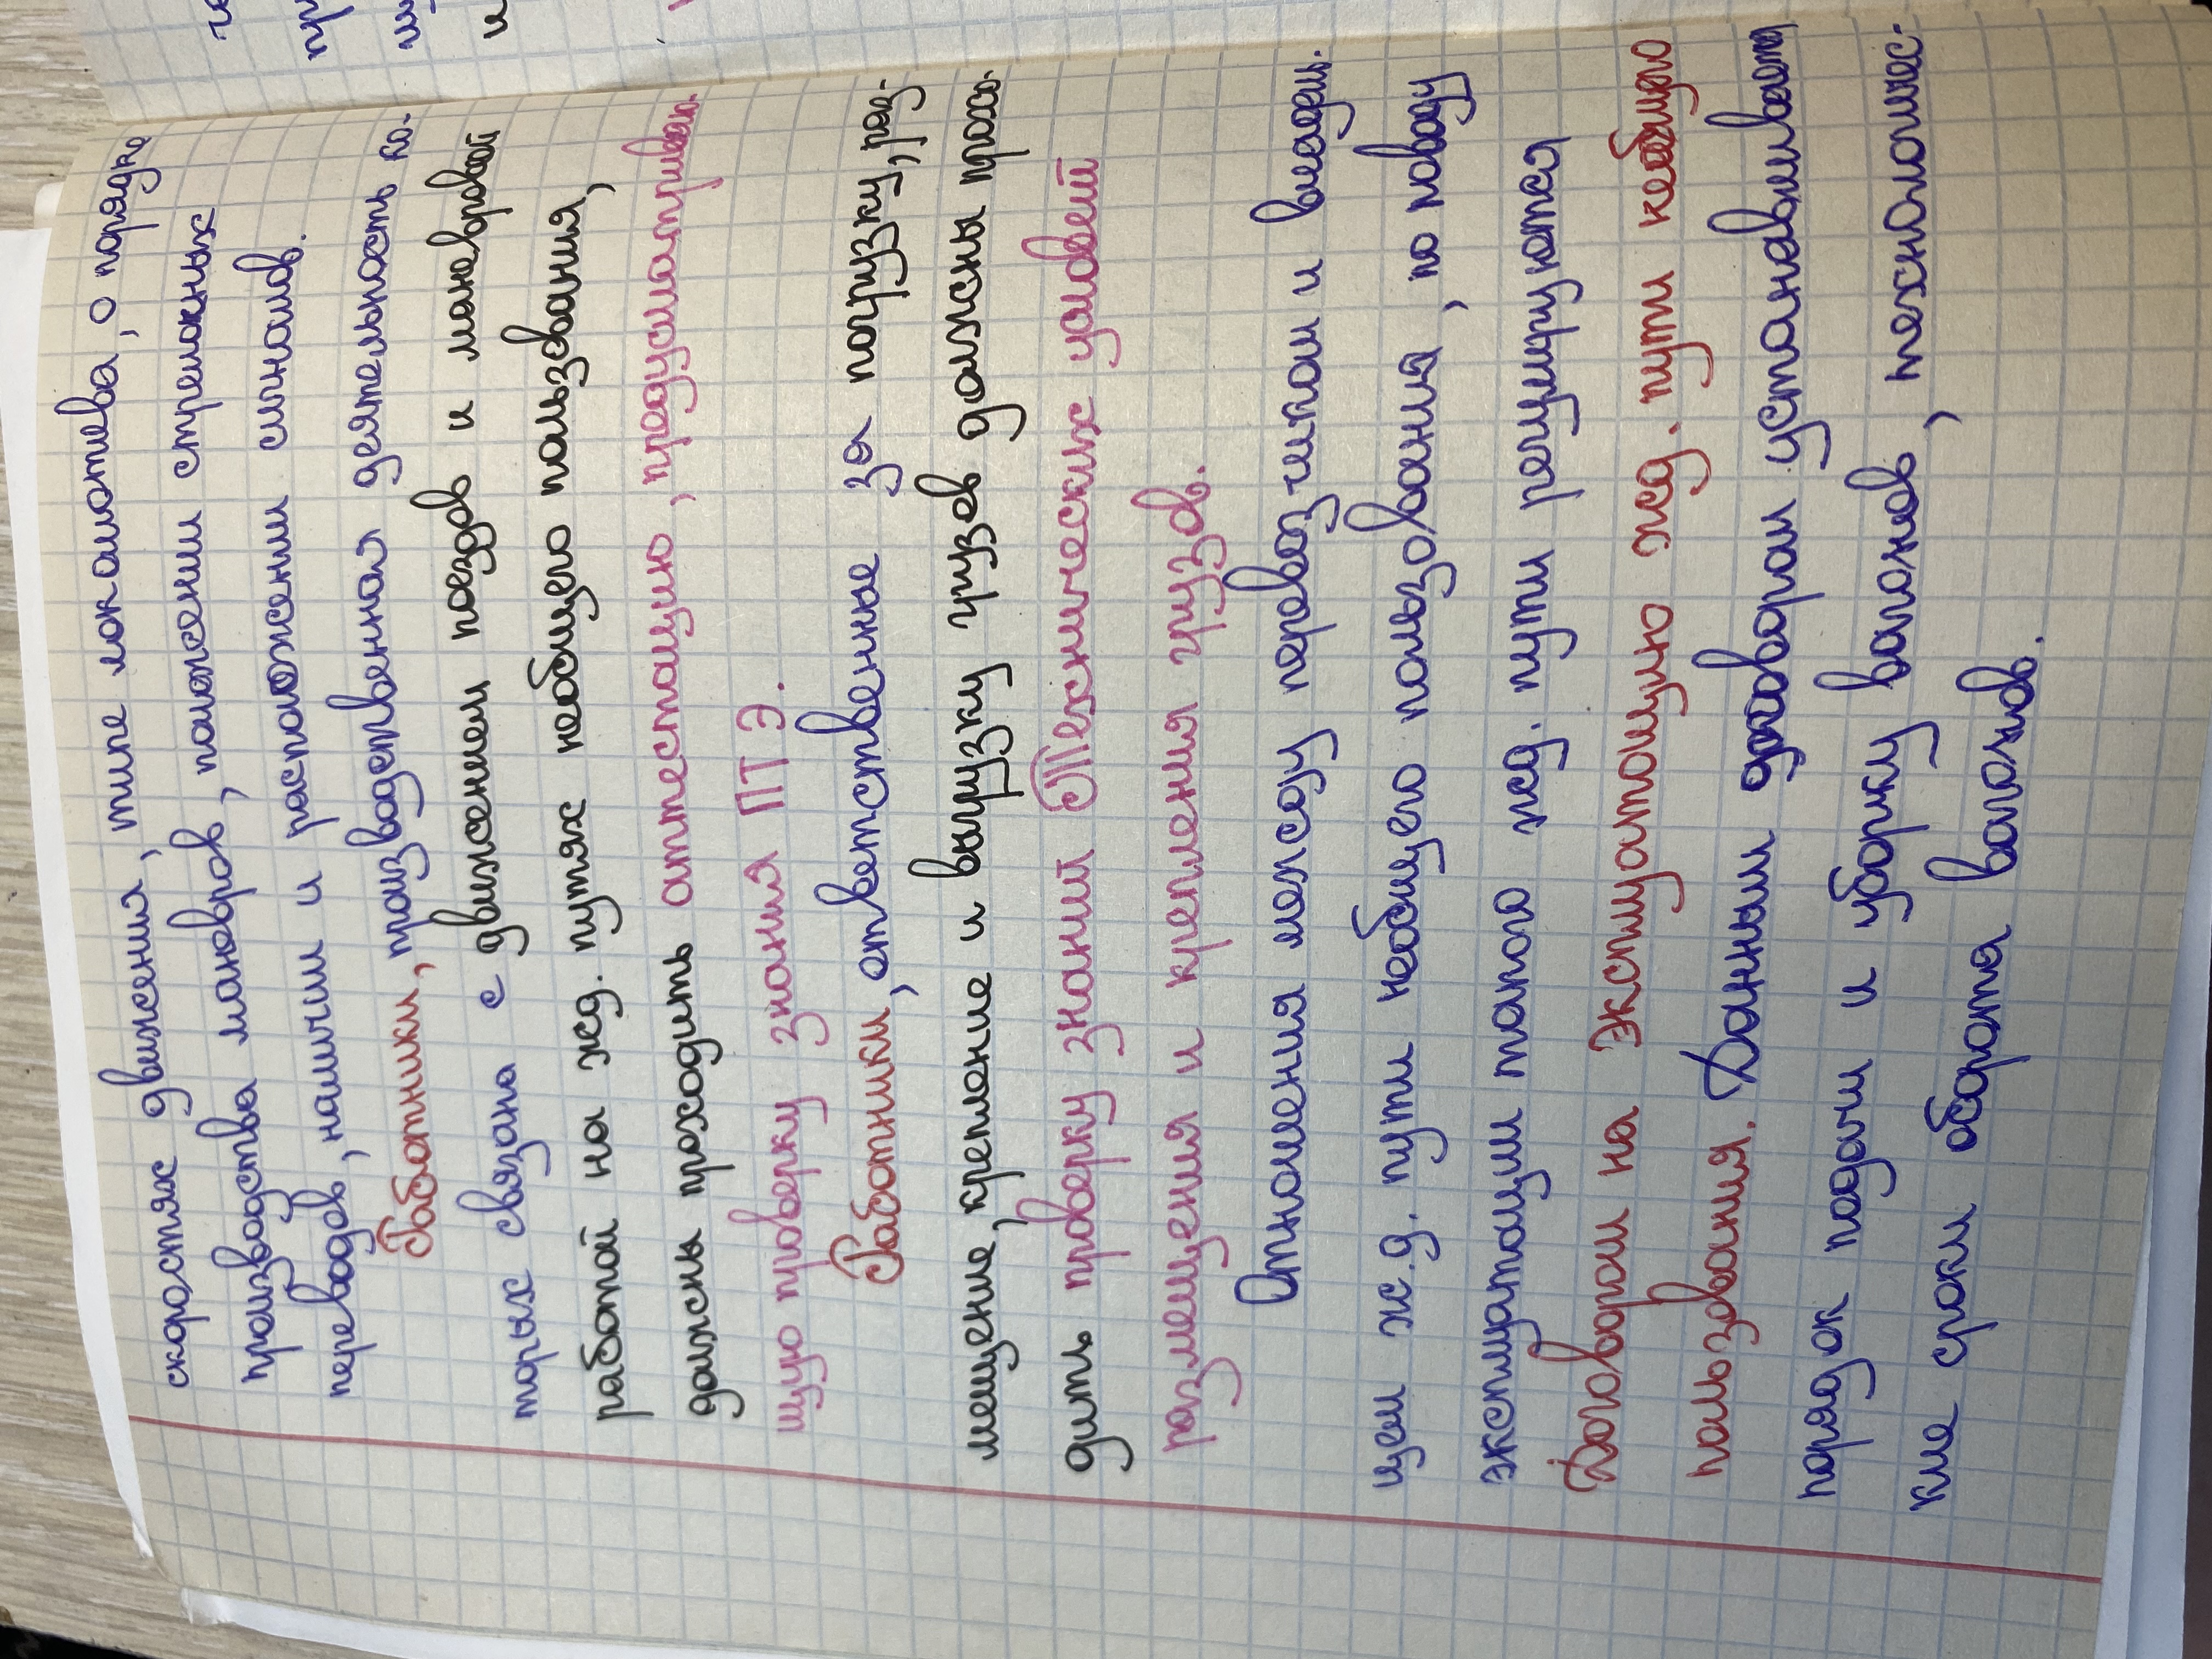 скоростях движения, типе локомотива, о порядке
производства маневров, положении стрелочных
переводов, наличии и расположении сигналов.
Работники, производственная деятельность ко-
торых связана с движением поездов и маневровой
работой на жд. путях необщего пользования,
должны проходить аттестацию, предусматриваю-
щую проверку знания ПТЭ.
Работники, ответственные за погрузку, раз-
мещение, крепление и выгрузку грузов должны прохо-
дить проверку знаний Технических условий
размещения и крепления грузов.
Отношения между перевозчиком и владель-
цем ж.д. пути необщего пользования, по поводу
эксплуатации такого жд. пути регулируются
Договором на эксплуатацию жд. пути необщего
пользования. Данным договором устанавливаются
порядок подачи и уборку вагонов, технологичес-
кие сроки оборота вагонов.